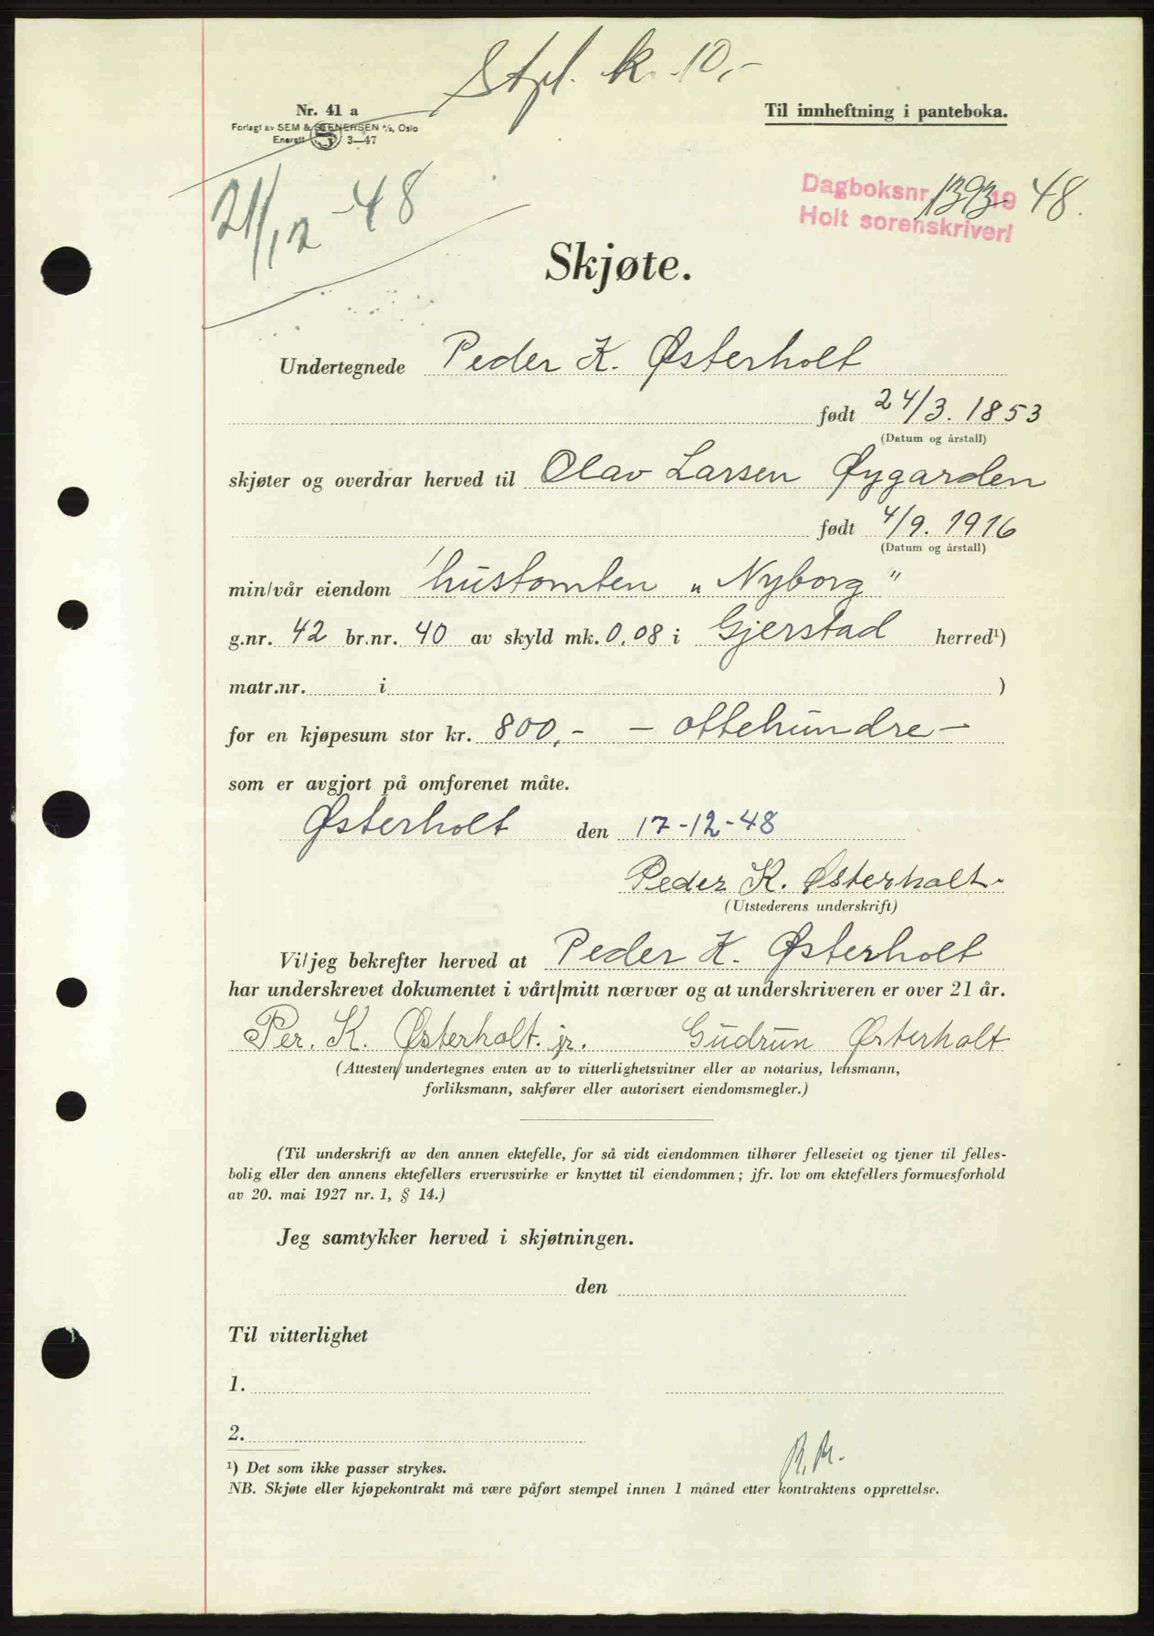 Stpl. kr. 10,-
Nr. 41 a
Forlagt av SEM & STENERSEN A/S, Oslo
Enerett 3—47
Til innheftning i panteboka.
21/12-48
Dagboksnr. 1393 1948.
Holt sorenskriveri
Skjøte.
Undertegnede Peder K. Østerholt
født 24/3. 1853
(Datum og årstall)
skjøter og overdrar herved til Olav Larsen Øygarden
født 4/9. 1916
(Datum og årstall)
min/vår eiendom hustomten "Nyborg"
g.nr. 42 br.nr. 40 av skyld mk. 0,08 i Gjerstad herred¹)
matr.nr. i )
for en kjøpesum stor kr. 800,- - ottehundre -
som er avgjort på omforenet måte.
Østerholt den 17-12-48
Peder K. Østerholt.
(Utstederens underskrift)
Vi/jeg bekrefter herved at Peder K. Østerholt
har underskrevet dokumentet i vårt/mitt nærvær og at underskriveren er over 21 år.
Per. K. Østerholt. jr. Gudrun Østerholt
(Attesten undertegnes enten av to vitterlighetsvitner eller av notarius, lensmann,
forliksmann, sakfører eller autorisert eiendomsmegler.)
(Til underskrift av den annen ektefelle, for så vidt eiendommen tilhører felleseiet og tjener til felles-
bolig eller den annens ektefellers ervervsvirke er knyttet til eiendommen; jfr. lov om ektefellers formuesforhold
av 20. mai 1927 nr. 1, § 14.)
Jeg samtykker herved i skjøtningen.
den
Til vitterlighet
1.
2.
¹) Det som ikke passer strykes.
NB. Skjøte eller kjøpekontrakt må være påført stempel innen 1 måned etter kontraktens opprettelse.